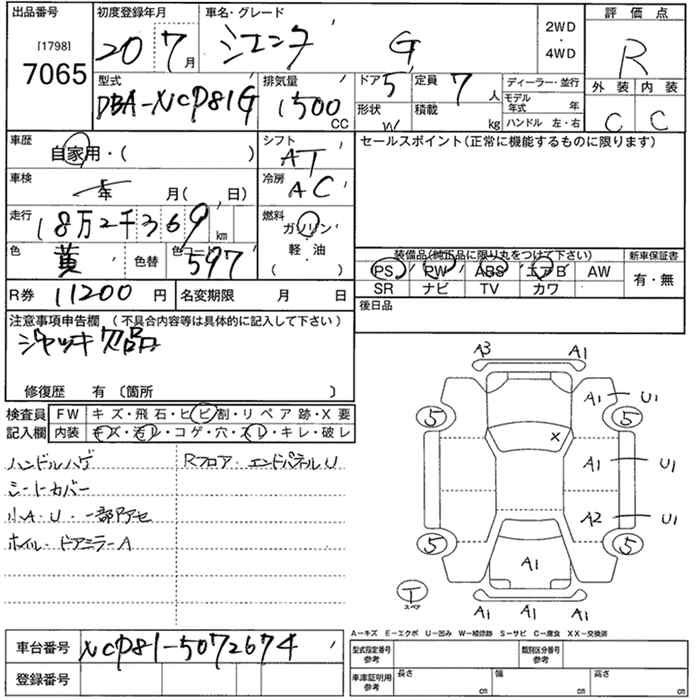 出品番号 初度登録年月 車名・グレード 評価点
[1798] 20 7月 シエンタ G 2WD・4WD R
7065
型式 排気量 ドア 5 定員 7人 ディーラー・並行 外装 内装
DBA-NCP81G 1500CC 形状 W 積載 kg モデル年式 年 C C
ハンドル 左・右
車歴 自家用・( ) シフト AT セールスポイント(正常に機能するものに限ります)
車検 年 月( 日) 冷房 AC
走行 18万2千369km 燃料 ガソリン・軽・油 ( )
色 黄 色替 色コード 597 装備品(純正品に限り丸をつけて下さい) 新車保証書
PS PW ABS エアB AW 有・無
SR ナビ TV カワ
R券 11200円 名変期限 月 日 後日品
注意事項申告欄 (不具合内容等は具体的に記入して下さい)
ジャッキ欠品
修復歴 有 〔箇所 〕
検査員 FW キズ・飛石・ヒビ割・リペア跡・X要
記入欄 内装 キズ・汚レ・コゲ・穴・スレ・キレ・破レ
ハンドルハゲ Rフロア・エンドパネルU
シートカバー
小A・U・一部アセ
ホイル・ドアミラーA
A3 A1
A1 U1
5 5
X
A1 U1
A2 U1
5 5
A1
T スペア
A1 A1 A1
A-キズ E-エクボ U-凹み W-補修跡 S-サビ C-腐食 XX-交換済
車台番号 NCP81-5072674 型式指定番号 参考 類別区分番号 参考
登録番号 車庫証明用 参考 長さ cm 幅 cm 高さ cm